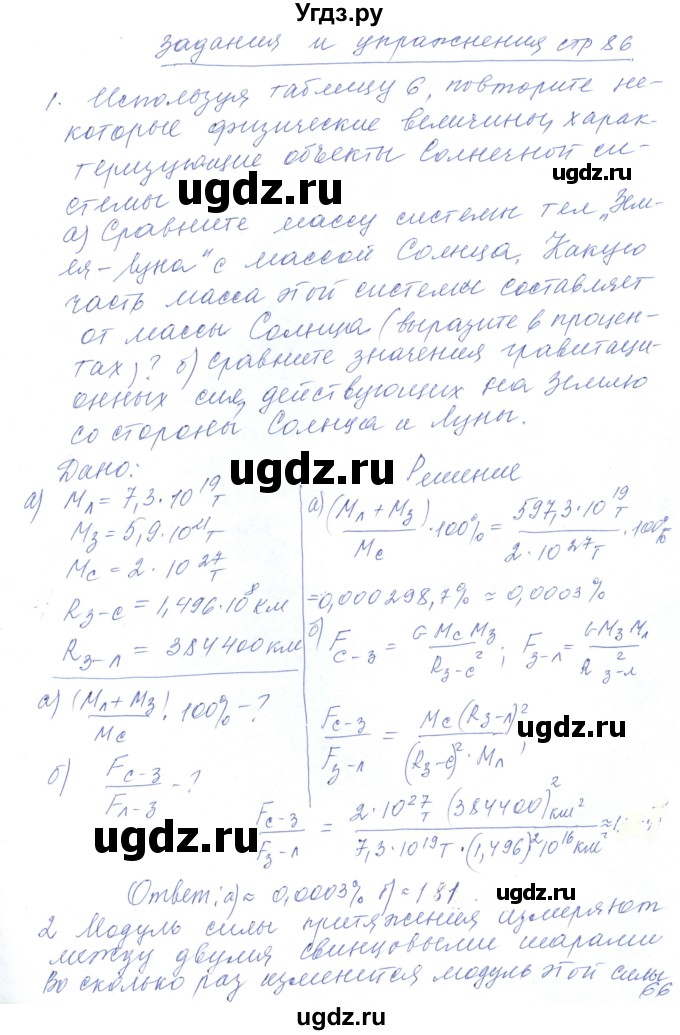 Угдз.ру
Задания и упражнения стр 86
1. Используя таблицу 6, повторите не-
которые физические величины, харак-
теризующие объекты Солнечной си-
стемы
ugdz.ru ugdz.ru
а) Сравните массу системы тел „Зем-
ля-Луна" с массой Солнца. Какую
часть масса этой системы составляет
от массы Солнца (выразите в процен-
тах)? б) Сравните значения гравитаци-
онных сил, действующих на Землю
со стороны Солнца и Луны.
ugdz.ru
Дано: Решение
а) Mл = 7,3·10¹⁹ т
Mз = 5,9·10²¹
Mс = 2·10²⁷ т
Rз-с = 1,496·10⁸ км
Rз-л = 384400 км
а) (Mл+Mз)/Mс · 100% - ?
б) Fс-з/Fл-з - ?
ugdz.ru ugdz.ru
а) (Mл+Mз)/Mс · 100% = 597,3·10¹⁹ т/2·10²⁷ т · 100%
= 0,000298,7% ≈ 0,0003%
б) Fс-з = G Mс Mз/Rз-с²; Fз-л = G Mз Mл/Rз-л²
Fс-з/Fз-л = Mс (Rз-л)²/(Rз-с)² · Mл;
ugdz.ru ugdz.ru
Fс-з/Fз-л = 2·10²⁷ т (384400)² км²/7,3·10¹⁹ т · (1,496)² 10¹⁶ км² ≈
Ответ: а) ≈ 0,0003% б) ≈ 181.
2 Модуль силы притяжения измеряют
между двумя свинцовыми шарами
Во сколько раз изменится модуль этой силы
66